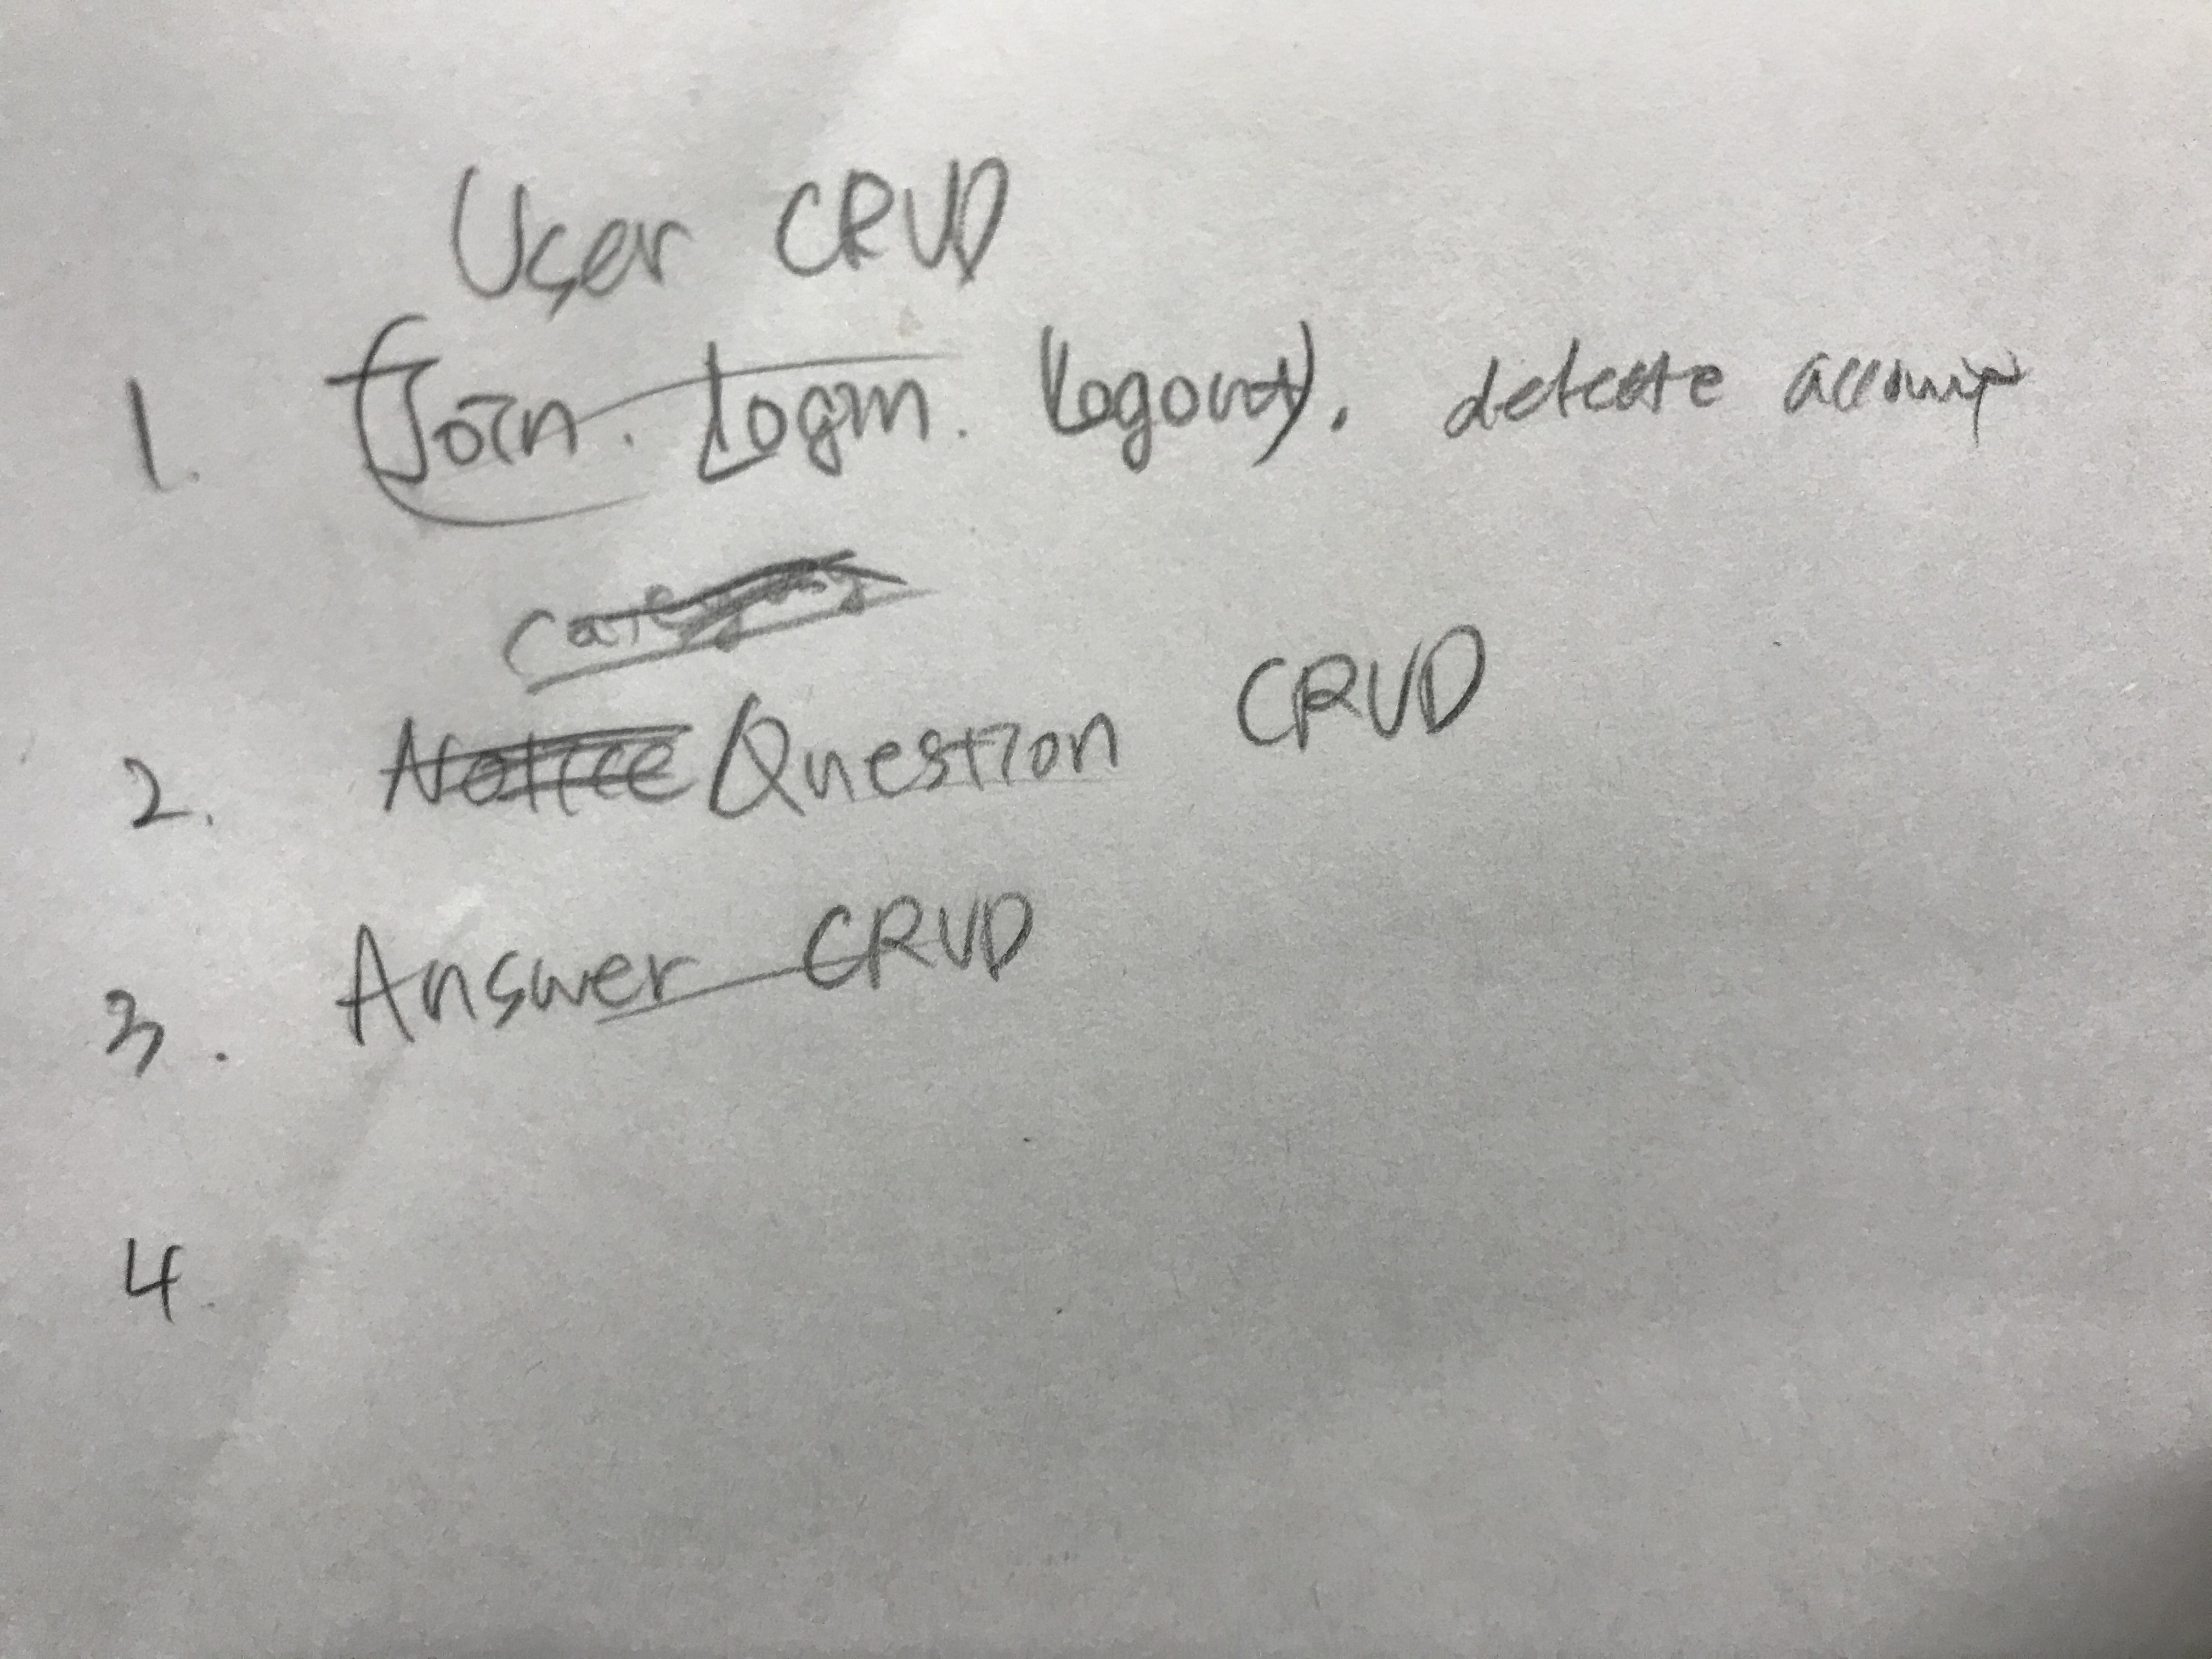 User CRUD
1. (Join. Login. Logout). delete account
category
2. Notice Question CRUD
3. Answer CRUD
4.